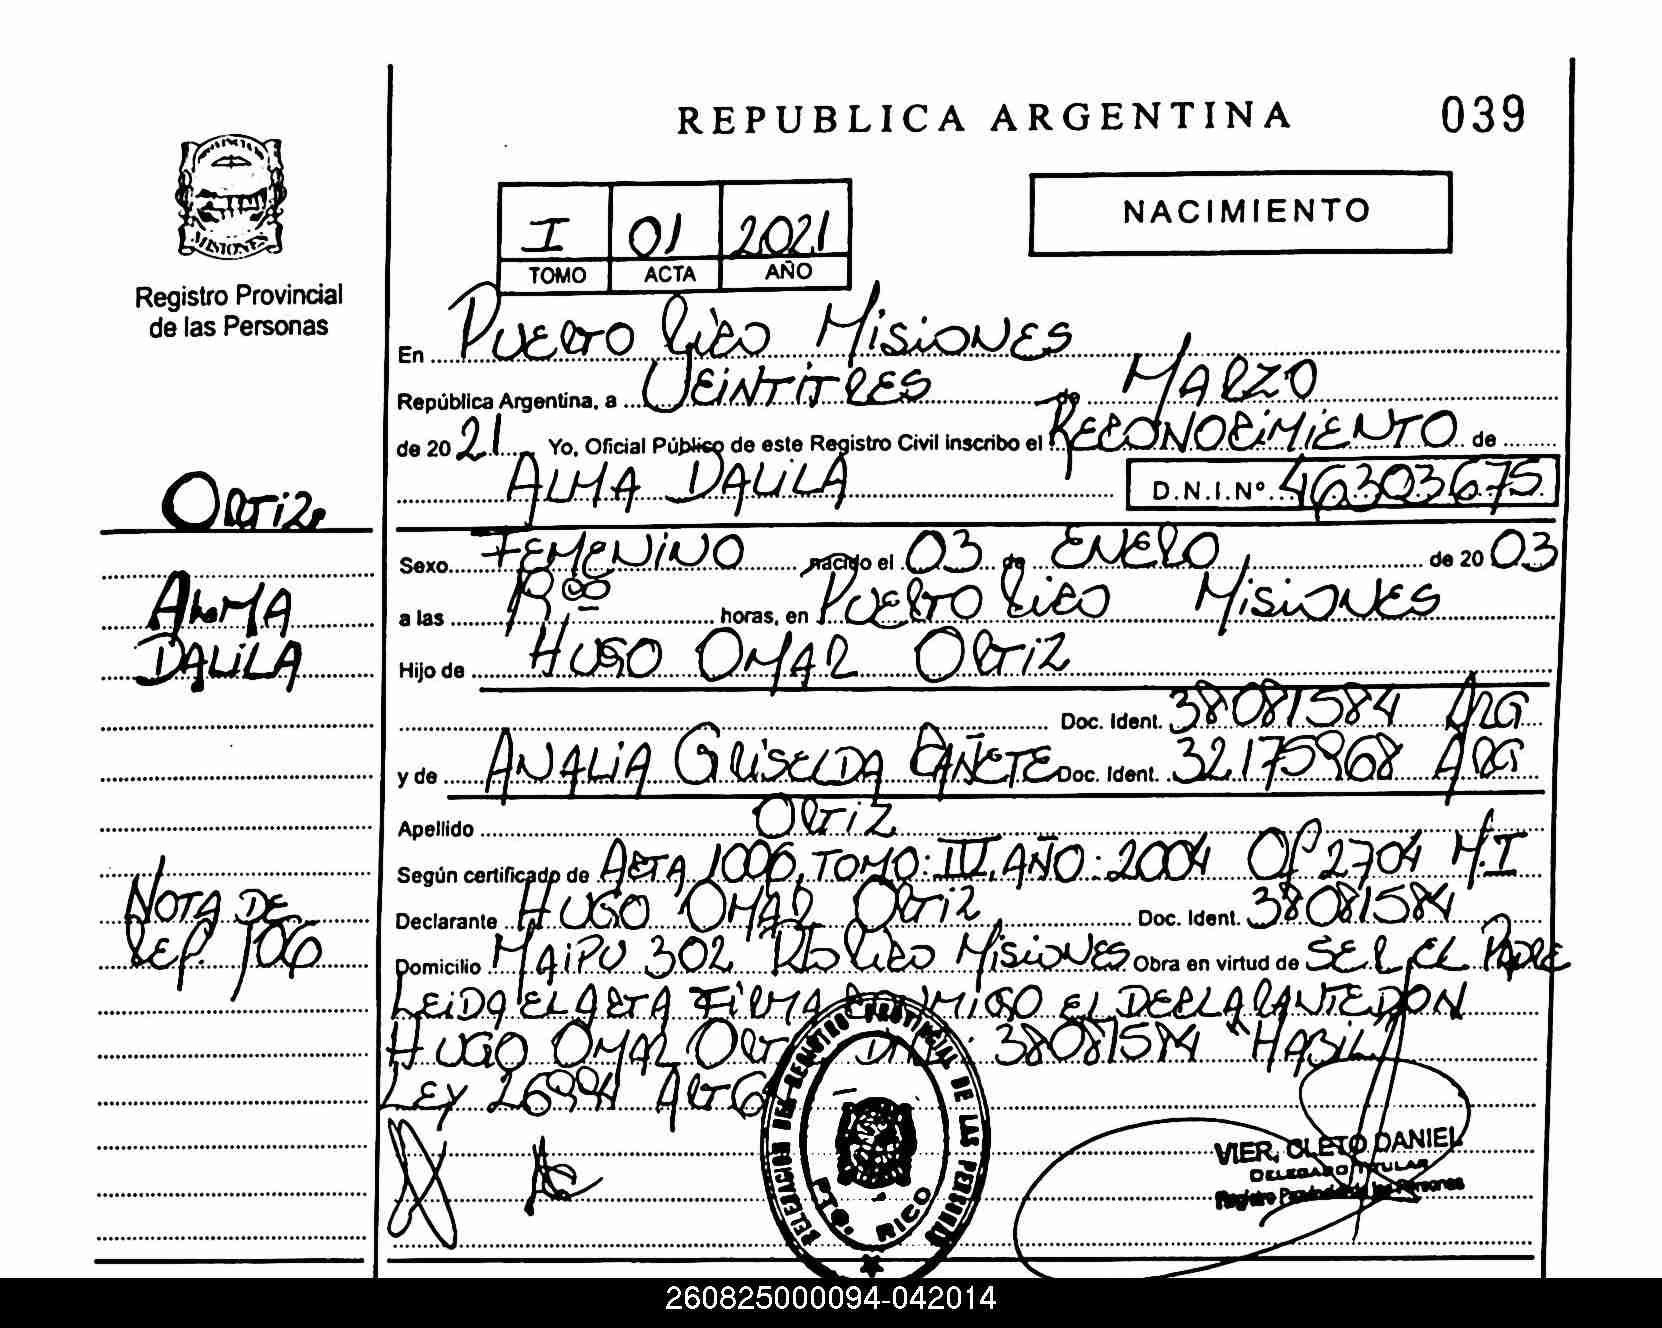 REPUBLICA ARGENTINA
039
MISIONES
Registro Provincial
de las Personas
I 01 2021
TOMO ACTA AÑO
NACIMIENTO
En PUERTO RICO MISIONES
República Argentina, a VEINTITRES de MARZO
de 2021 Yo, Oficial Público de este Registro Civil inscribo el RECONOCIMIENTO de
ALMA DALILA D.N.I.Nº 46303675
ORTIZ
Sexo FEMENINO nacido el 03 de ENERO de 2003
ALMA
DALILA
a las horas, en PUERTO RICO MISIONES
Hijo de HUGO OMAR ORTIZ
Doc. Ident. 38081584 ARG
y de ANALIA GRISELDA CAÑETE Doc. Ident. 32175968 ARG
Apellido ORTIZ
Según certificado de ACTA 1006, TOMO: III, AÑO: 2004 Of 2704 M.I
NOTA DE
REF. 106
Declarante HUGO OMAR ORTIZ Doc. Ident. 38081584
Domicilio MAIPU 302 Pto RICO MISIONES Obra en virtud de SER EL PADRE
LEIDA EL ACTA FIRMA CONMIGO EL DECLARANTE DON
HUGO OMAR ORTIZ DNI: 38081584 "HABIL"
LEY 26994 ARTG
DELEGACION DEL REGISTRO PROVINCIAL DE LAS PERSONAS
PTO. RICO
VIER, CLETO DANIEL
DELEGADO TITULAR
Registro Provincial de las Personas
260825000094-042014